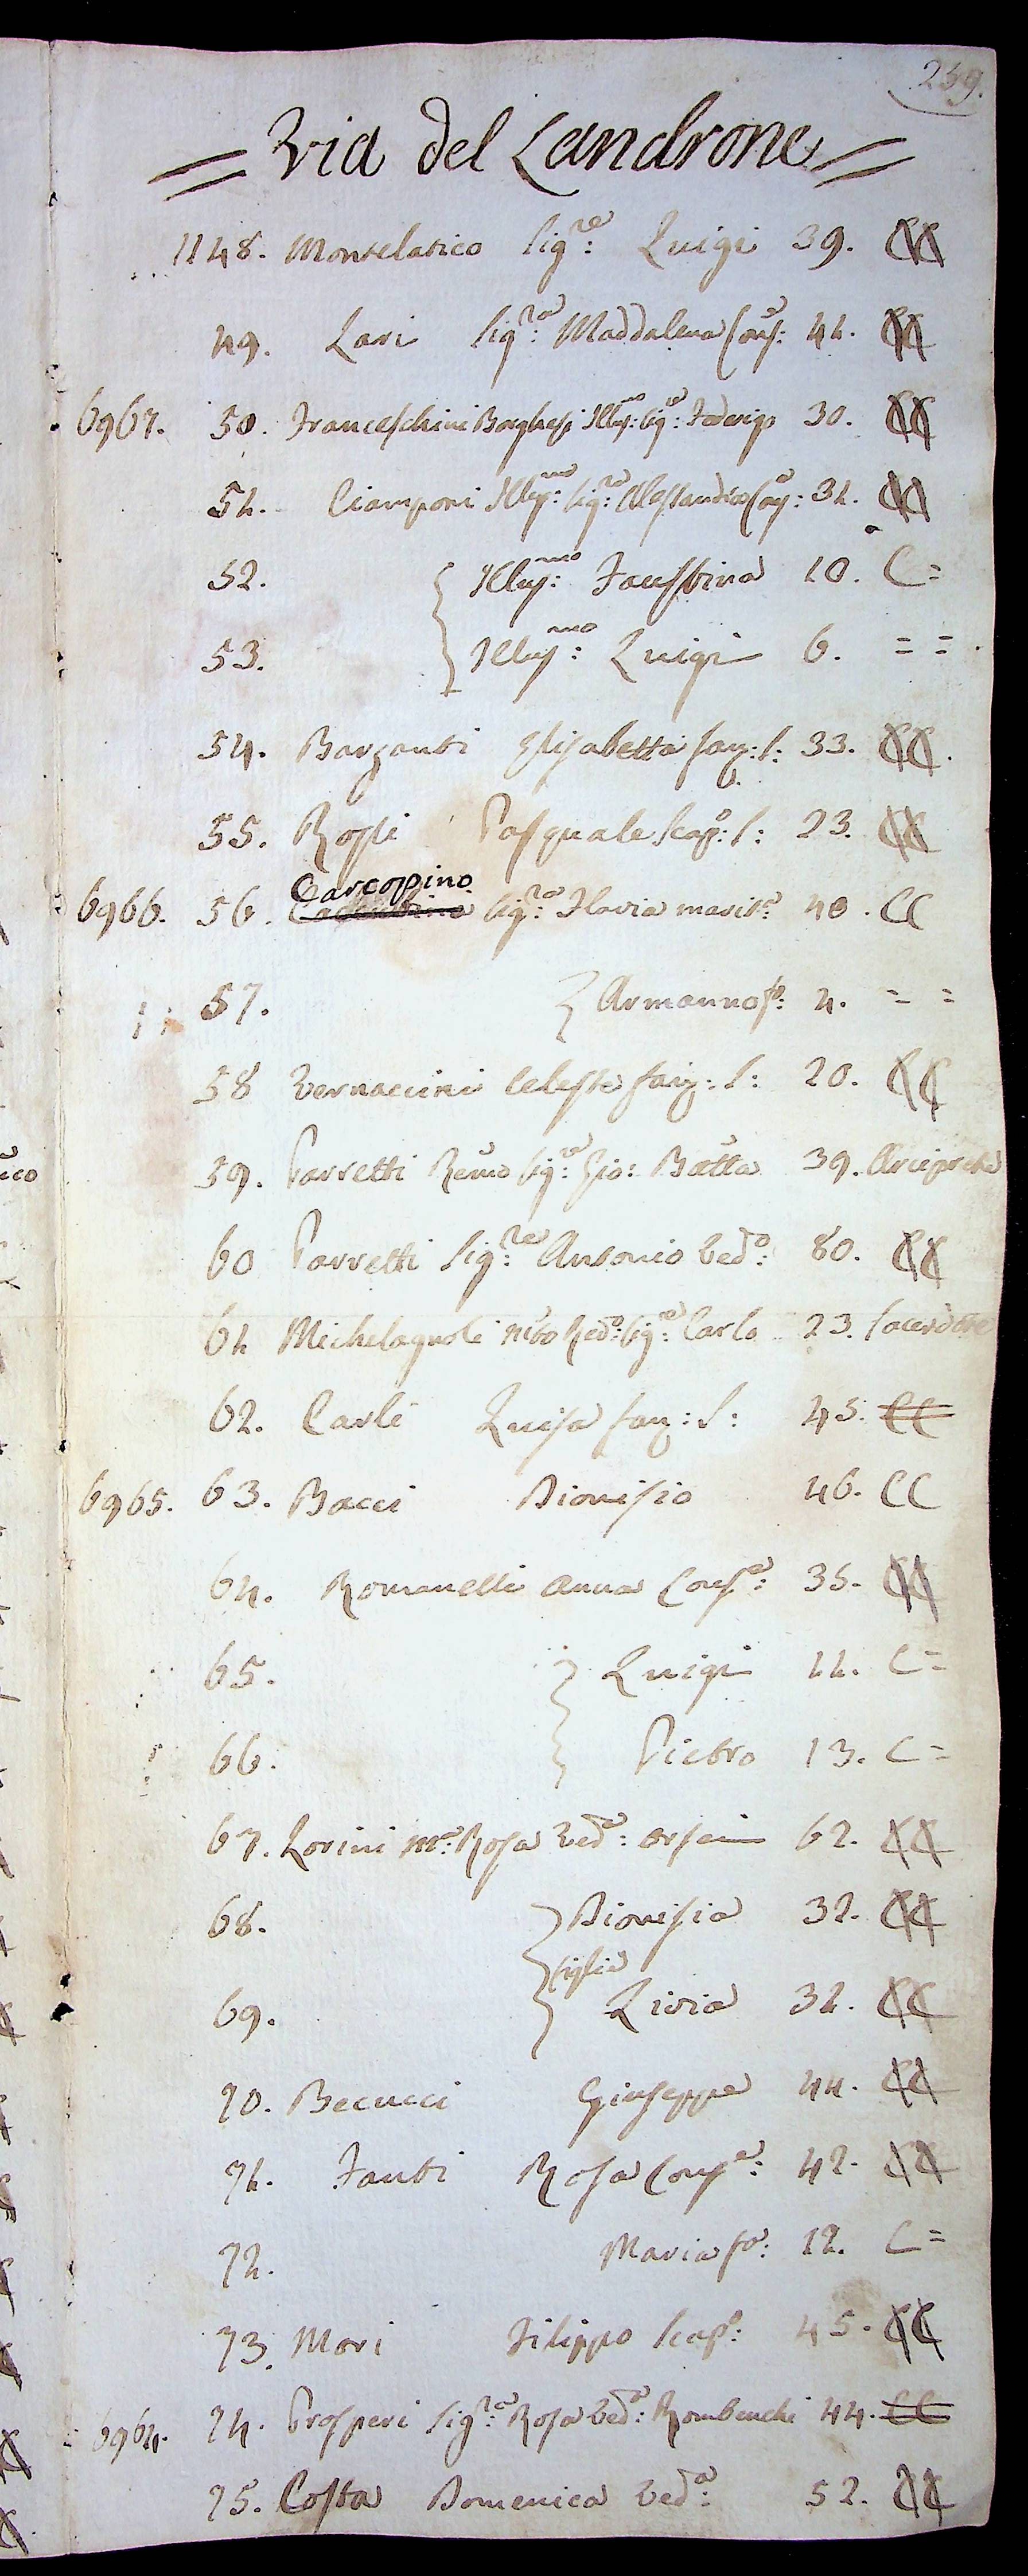 259.
= Via del Landrone =
1148. Montelatico Sig.re Luigi 39. CC
49. Lari Sig.ra Maddalena Cons: 41. CC
6967. 50. Franceschini Borghesi Illus.mo Sig.re Federigo 30. CC
51. Ciamponi Illus.ma Sig.ra Alessandra Con: 31. CC
52. { Illus.mo Faustino 10. C =
53. Illus.mo Luigi 6. = =
54. Barzanti Elisabetta fan: S: 33. CC.
55. Rossi Pasquale Scap.o: S: 23. CC
Carcopino
6966. 56. Sig.ra Flavia marit.a 40. CC
57. { Armanno fo: 4. = =
58 Vernaccini Celeste fan: S: 20. CC
59. Parretti Remo Sig.re Gio: Batta 39. Arciprete
60 Parretti Sig.re Antonio Ved.o: 80. CC
61 Michelagnoli Red.o Sig.re Carlo 23. Sacerdote
62. Carli Luisa fan: S: 45. CC
6965. 63. Bacci Dionisio 46. CC
64. Romanelli Anna Cons.e: 35. CC
65. } Luigi 11. C =
66. Pietro 13. C =
67. Lorini M.a Rosa Ved.a: Orsini 62. CC
68. } Dionisia 32. CC
figlie
69. Livia 31. CC
70. Becucci Giuseppe 44. CC
71. Fanti Rosa Cons.e: 42. CC
72. Maria fa: 12. C =
73. Mori Filippo Scap.o: 45. CC
6964. 74. Prosperi Sig.ra Rosa Ved.a: Rombenchi 44. CC
75. Costa Domenica Ved.a: 52. CC